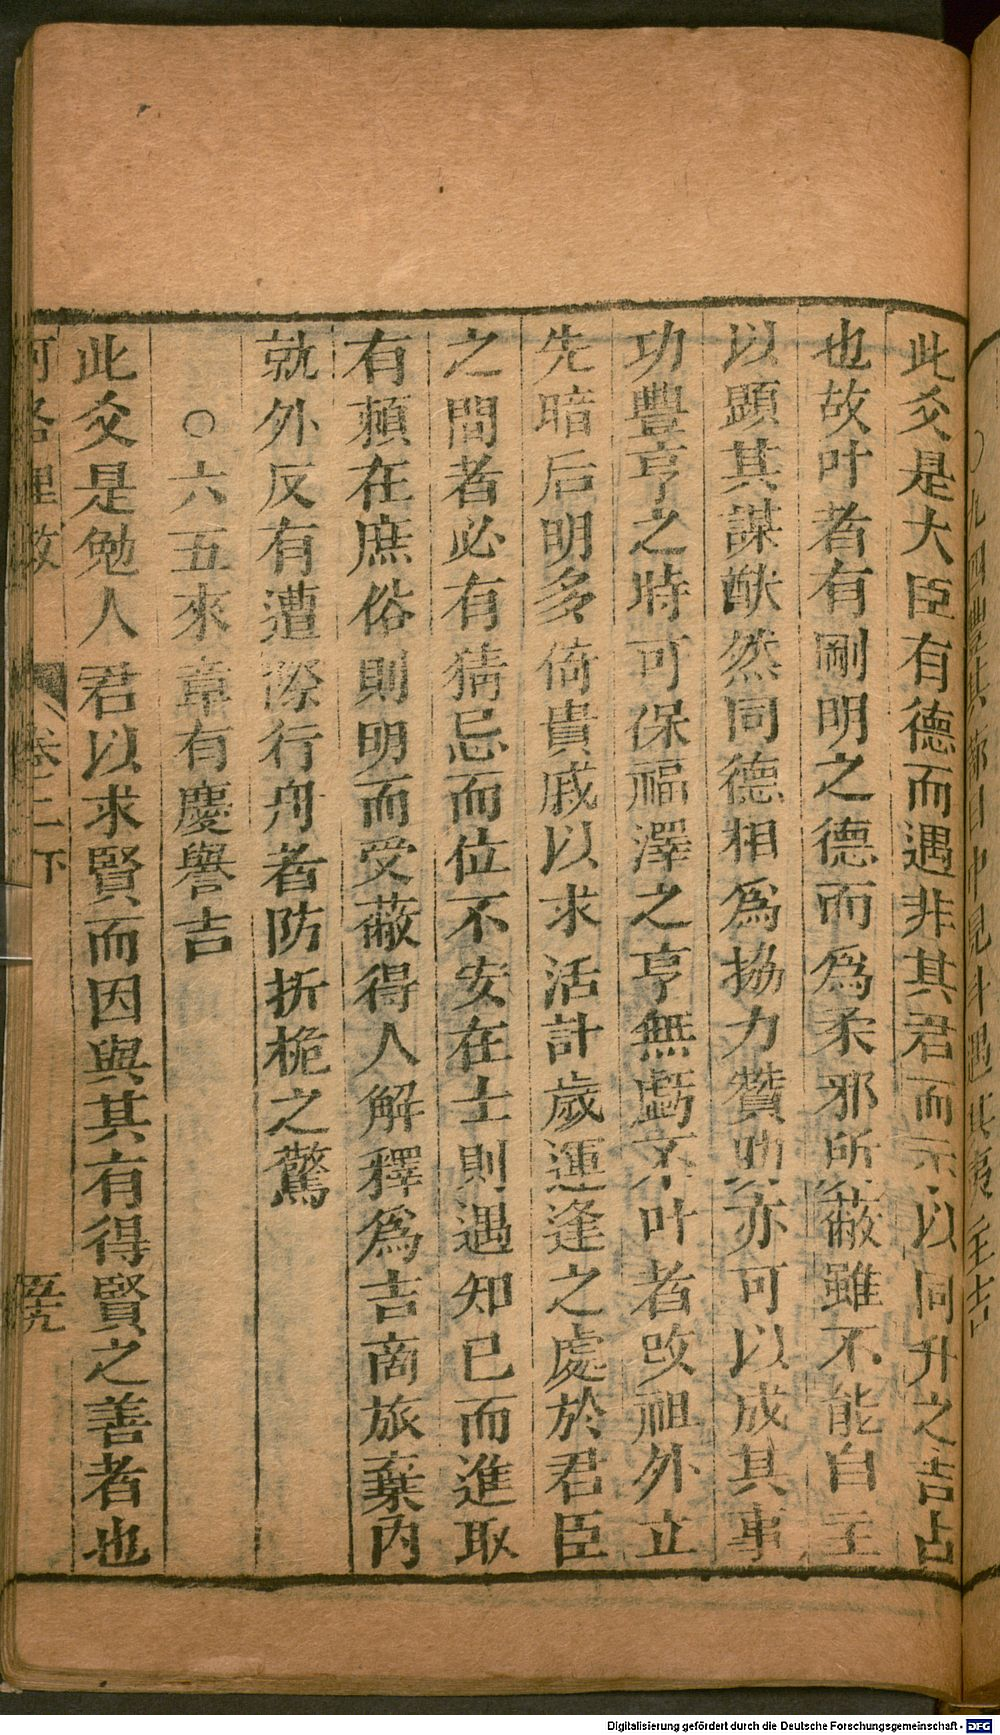 此爻是大臣有德而遇非其君而示以同升之吉占
也故叶者有剛明之德而爲柔邪所蔽雖不能自主
以顯其謀猷然同德相爲協力贊助亦可以成其事
功豐亨之時可保福澤之亨無虧不叶者改祖外立
先暗后明多倚貴戚以求活計歲運逢之處於君臣
之間者必有猜忌而位不安在士則遇知已而進取
有蘋在庶俗則明而受蔽得人解釋爲吉商旅棄內
就外反有遭際行舟者防折桅之驚
○六五來章有慶譽吉
此爻是勉人君以求賢而因與其有得賢之善者也
河洛理數 卷二下 五十九
Digitalisierung gefördert durch die Deutsche Forschungsgemeinschaft - DFG